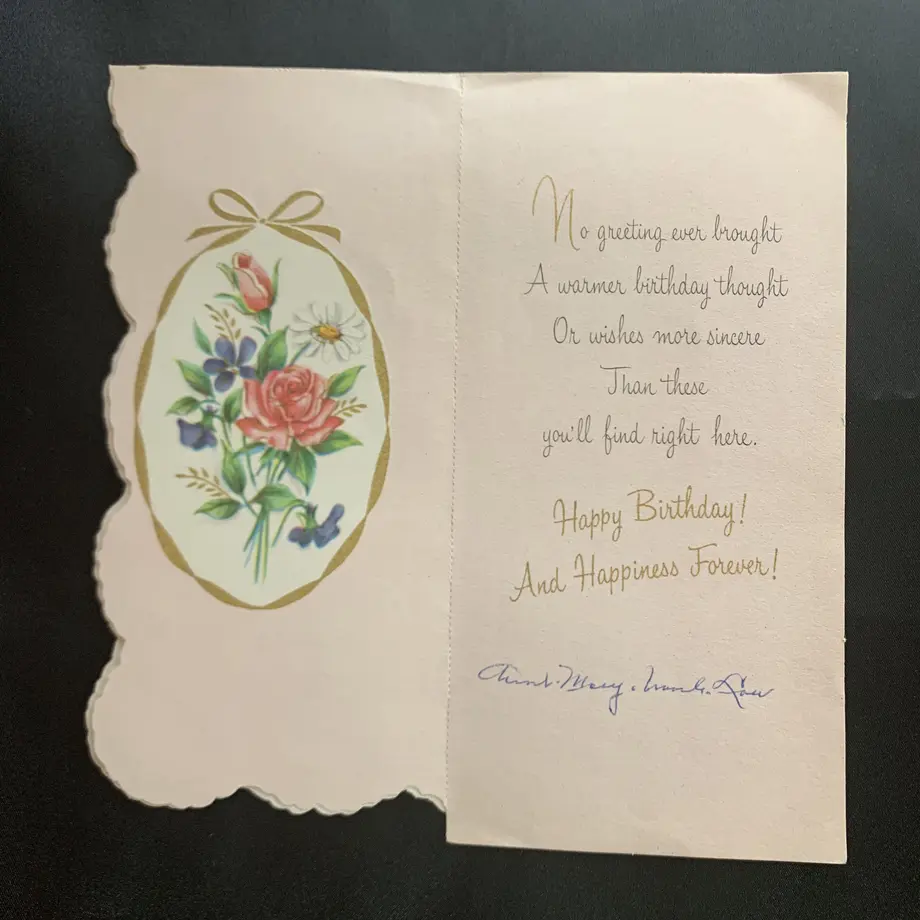 No greeting ever brought
A warmer birthday thought
Or wishes more sincere
Than these
you'll find right here.
Happy Birthday!
And Happiness Forever!
Aunt Mary